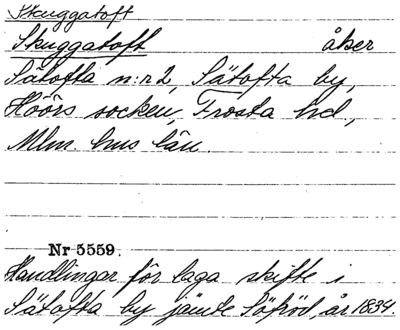 Skuggatoft
Skuggatoft åker
Sätofta n:r 2, Sätofta by,
Höörs socken, Frosta hd,
Mlm. hus län
Nr 5559.
Handlingar för laga skifte i
Sätofta by jämte Löfröd, år 1834.